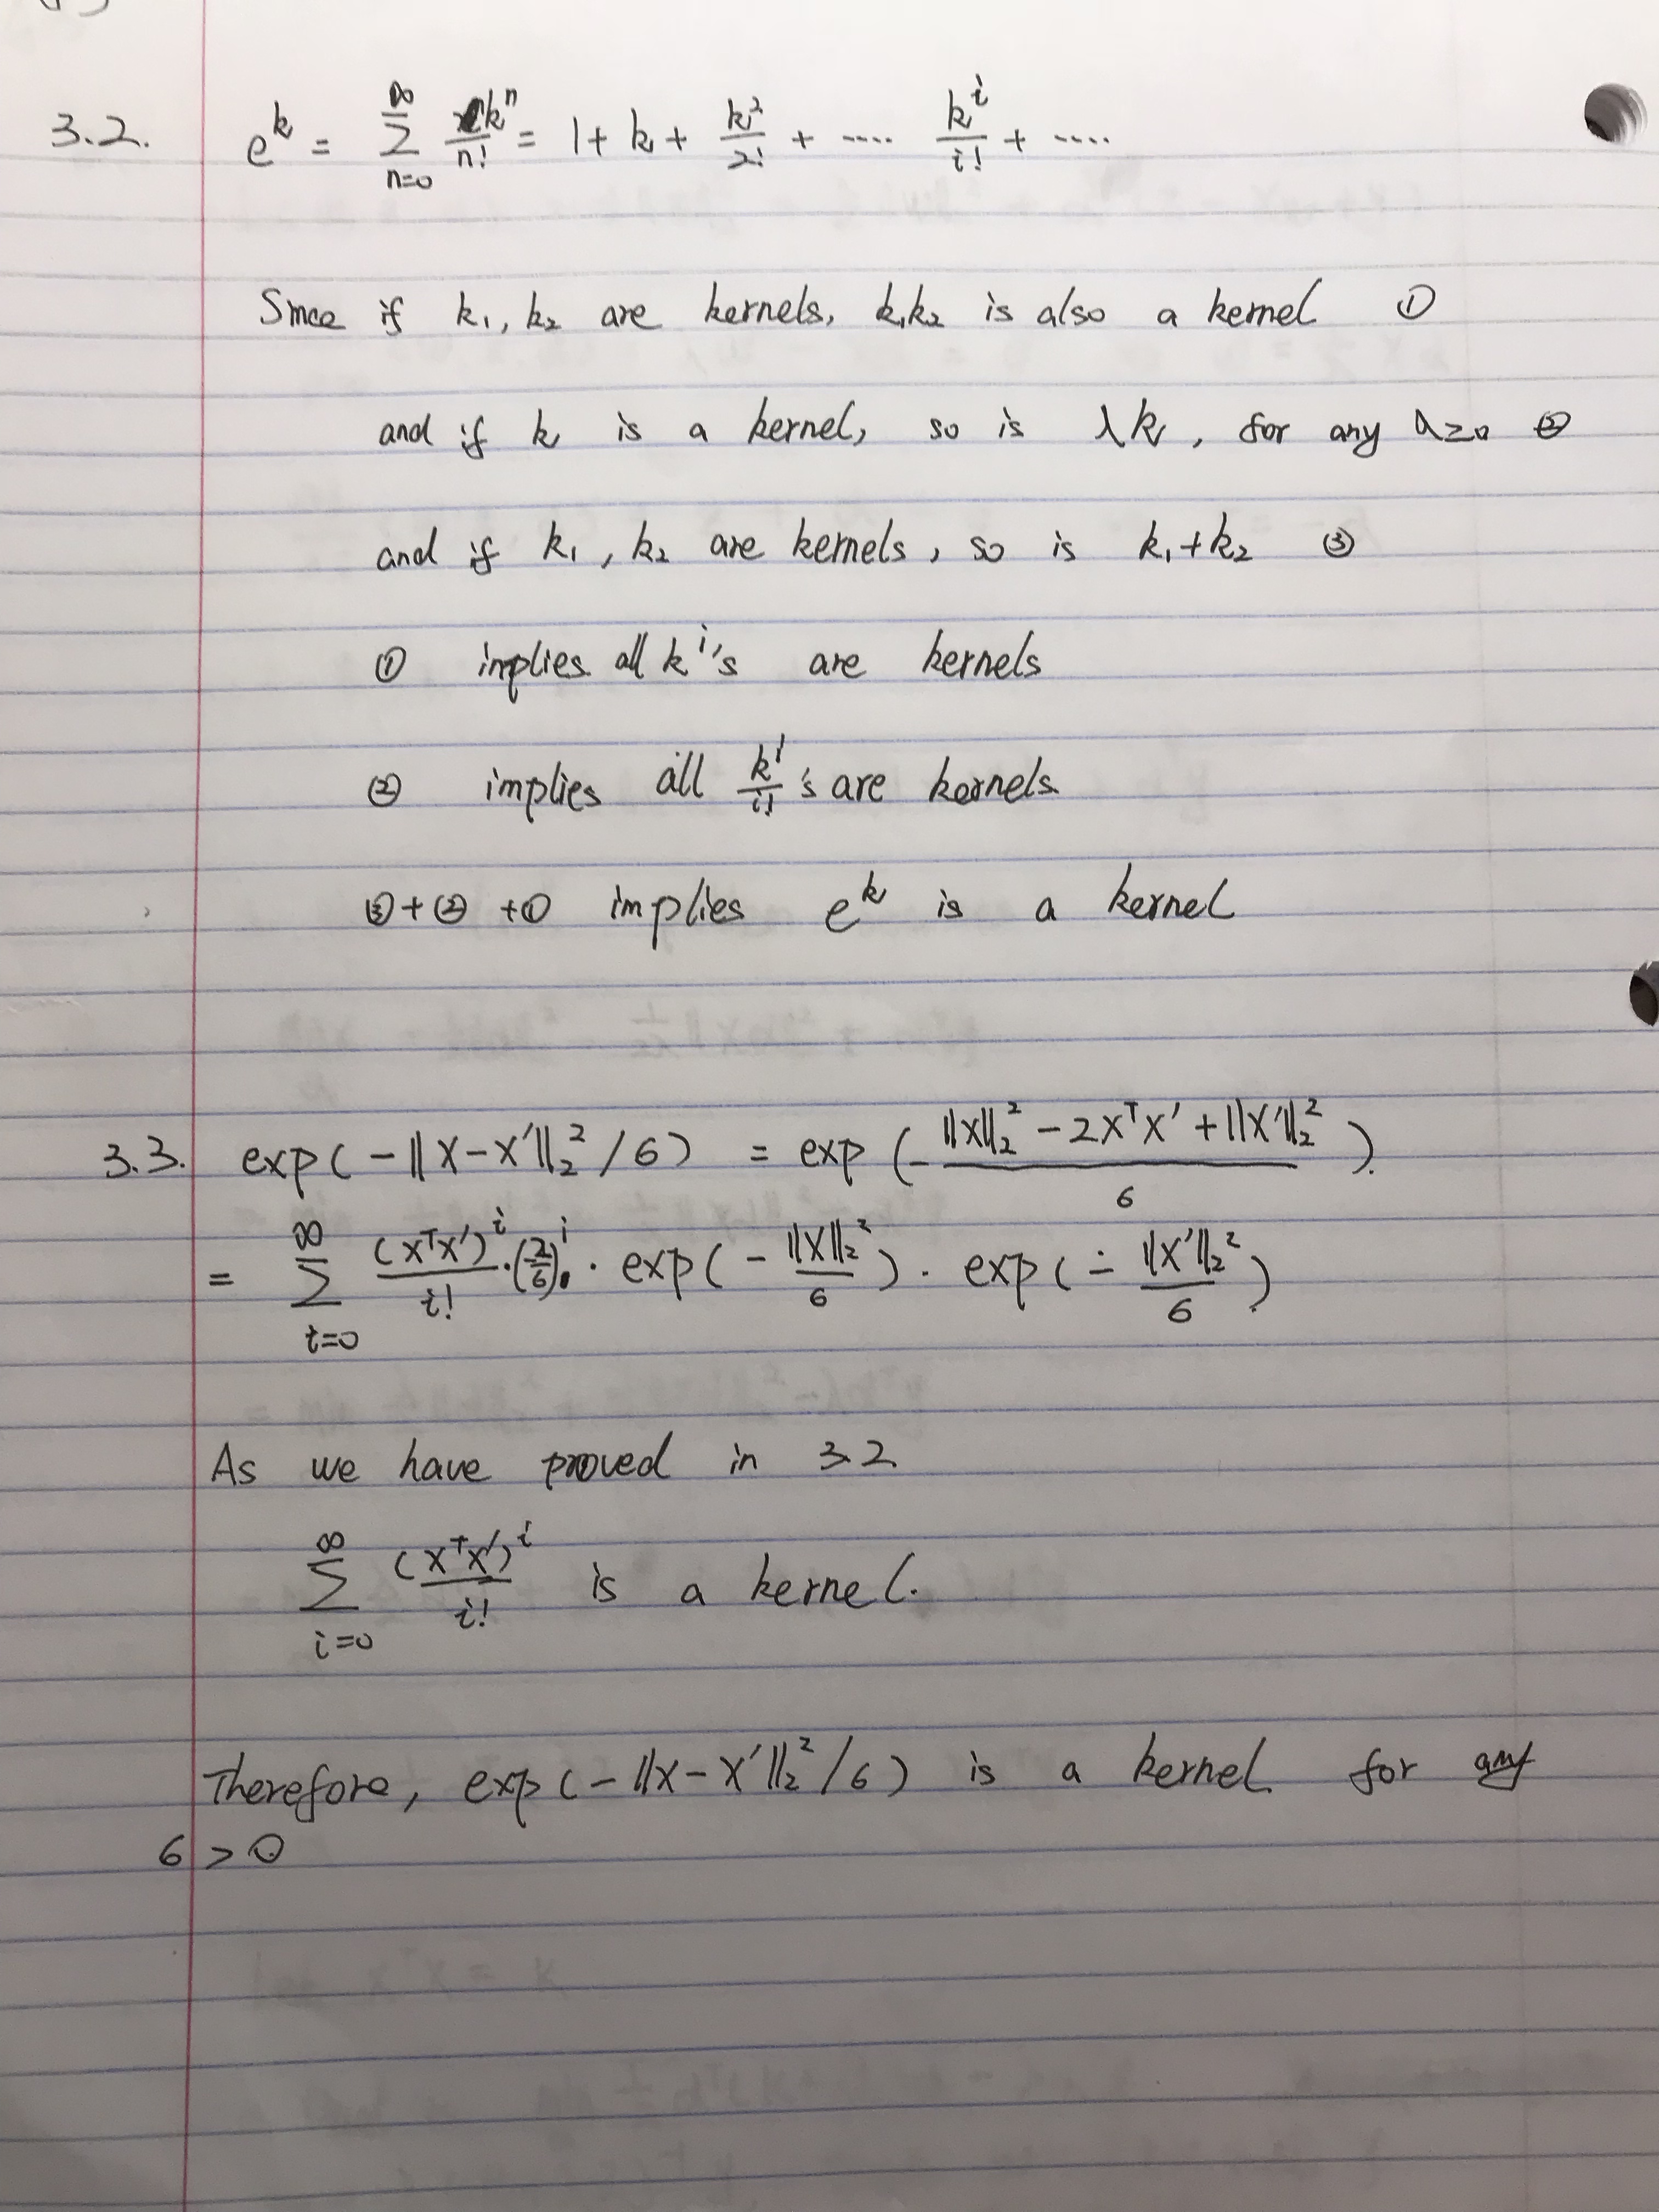 3.2. e^k = ∑_{n=0}^{∞} k^n/n! = 1 + k + k²/2! + .... k^i/i! + ....
Since if k₁, k₂ are kernels, k₁k₂ is also a kernel ①
and if k is a kernel, so is λk, for any λ≥0 ②
and if k₁, k₂ are kernels, so is k₁+k₂ ③
① implies all k^i's are kernels
② implies all k^i/i! 's are kernels.
③+②+① implies e^k is a kernel
3.3. exp(-||X-X'||₂²/6) = exp(- (||X||₂² - 2X^TX' + ||X'||₂²)/6).
= ∑_{i=0}^{∞} (X^TX')^i/i! · (2/6)^i · exp(- ||X||₂²/6) · exp(- ||X'||₂²/6).
As we have proved in 3.2
∑_{i=0}^{∞} (X^TX')^i/i! is a kernel.
Therefore, exp(-||X-X'||₂²/6) is a kernel for any
6 > 0